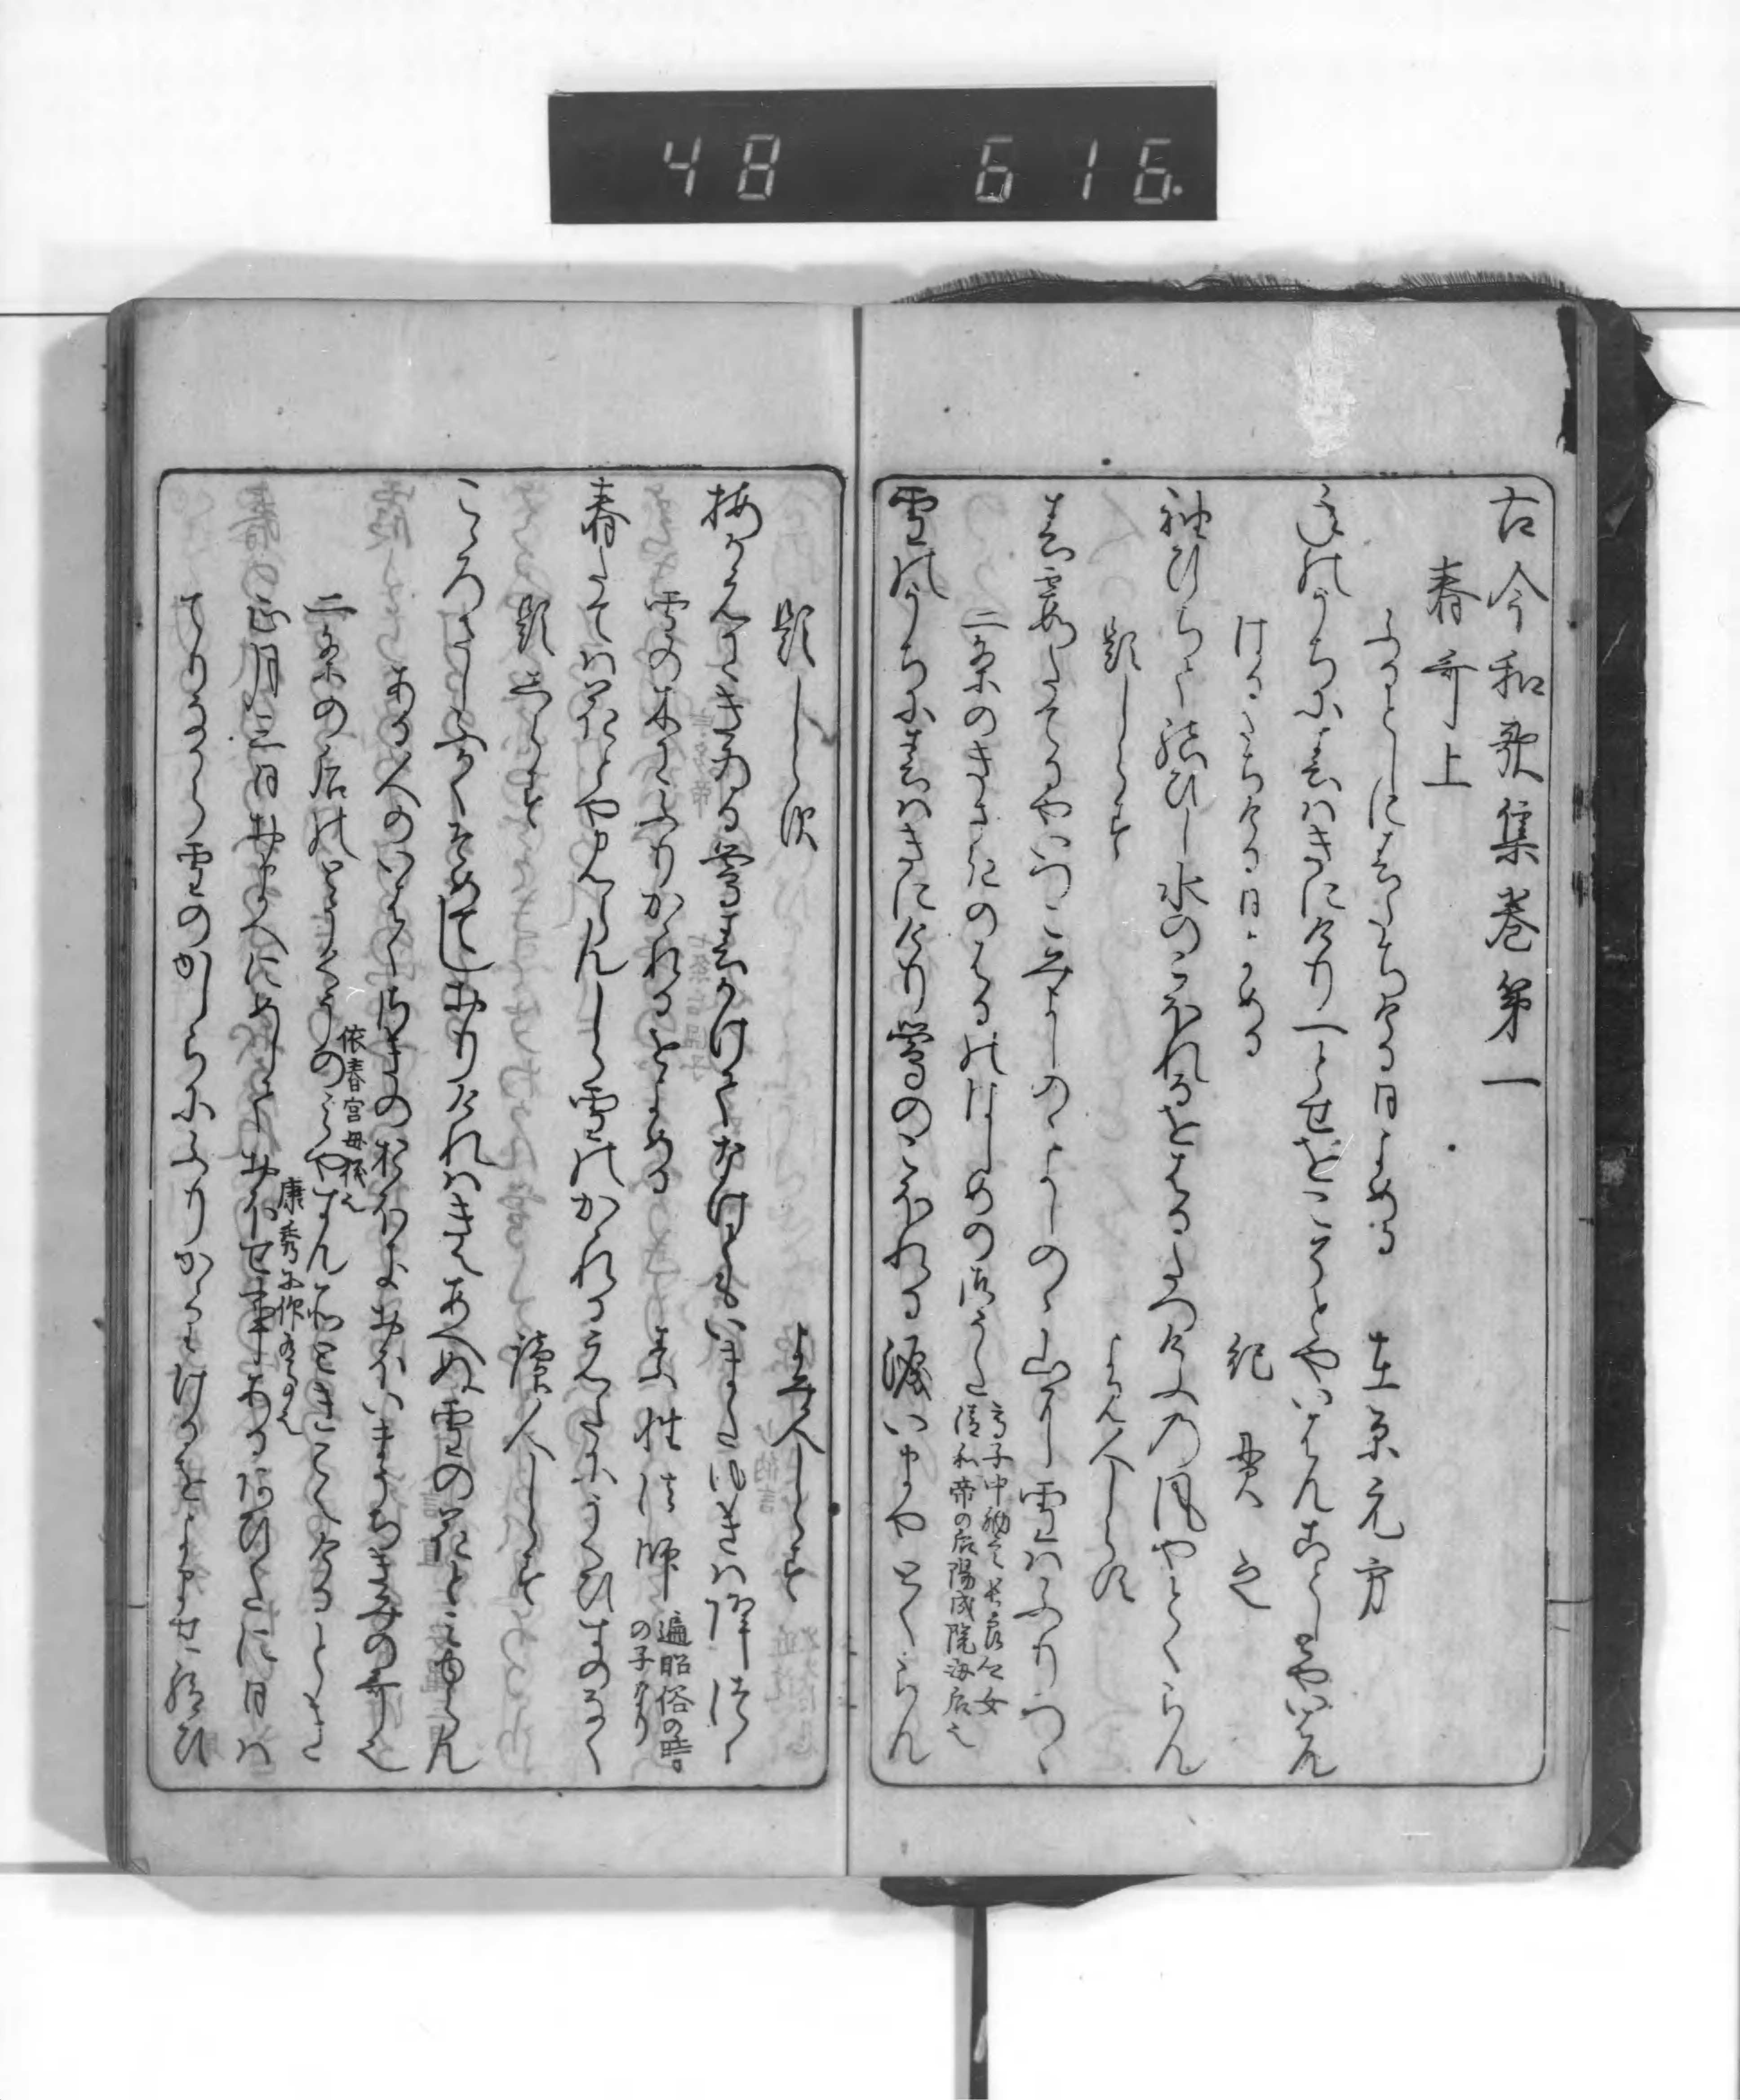 48 616.
古今和歌集巻第一
春哥上
ふるとしに春たちける日よめる 在原元方
年のうちに春はきにけり一とせをこそとやいはんことしとやいはん
はるたちける日よめる 紀貫之
袖ひちて結ひし水のこほれるをはるたつけふの風やとくらん
題しらす よみ人しらす
春霞たてるやいつこみよしのゝよしのゝ山に雪はふりつゝ
二条のきさきのはるのはしめの御うた
高子中納言長良公女
清和帝の后陽成院母后也
雪のうちに春はきにけり鶯のこほれる涙いまやとくらん
題しらす よみ人しらす
梅かえにきゐる鶯春かけてなけともいまたゆきは降つゝ
雪の木にふりかゝれるをよめる 素性法師
遍昭俗の時
の子なり
春たては花とやみらんしら雪のかゝれるえたにうくひすのなく
題しらす 讀人しらす
こゝろさしふかくそめてしおりけれはきえあへぬ雪の花とみゆらん
ある人のいはくさきのおほきおほいまうちきみの哥也
二条の后のとうくうのみやすん所ときこえける時
依春宮母儀也
正月三日おまへにめしておほせ事ある
康秀に作
あひたに日は
てりなから雪のかしらにふりかゝりけるをよませ給ひ